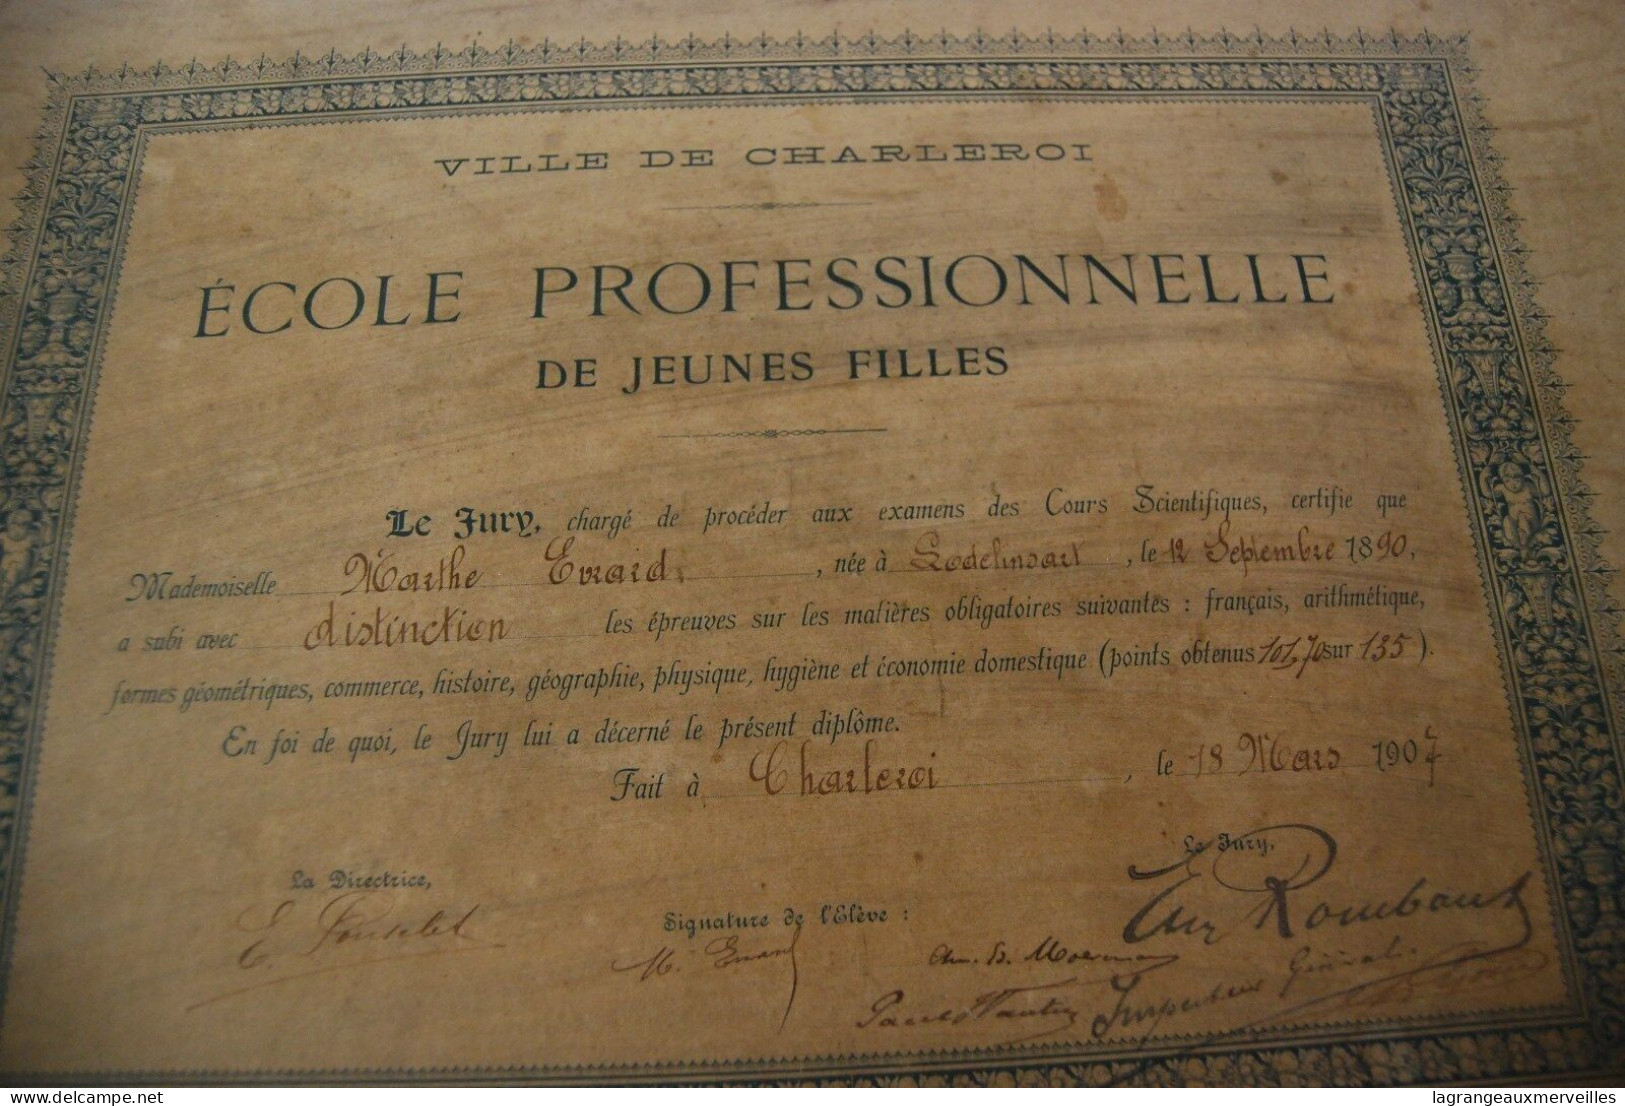 VILLE DE CHARLEROI
ÉCOLE PROFESSIONNELLE
DE JEUNES FILLES
Le Jury, chargé de procéder aux examens des Cours Scientifiques, certifie que
Mademoiselle Marthe Evrard, née à Lodelinsart, le 12 Septembre 1890,
a subi avec distinction les épreuves sur les matières obligatoires suivantes : français, arithmétique,
formes géométriques, commerce, histoire, géographie, physique, hygiène et économie domestique (points obtenus 101,70 sur 135).
En foi de quoi, le Jury lui a décerné le présent diplôme.
Fait à Charleroi, le 18 Mars 1907
Le Jury,
La Directrice,
Signature de l'Elève :
Rombaut
M. Evrard
Inspecteur Général
delcampe.net
lagrangeauxmerveilles